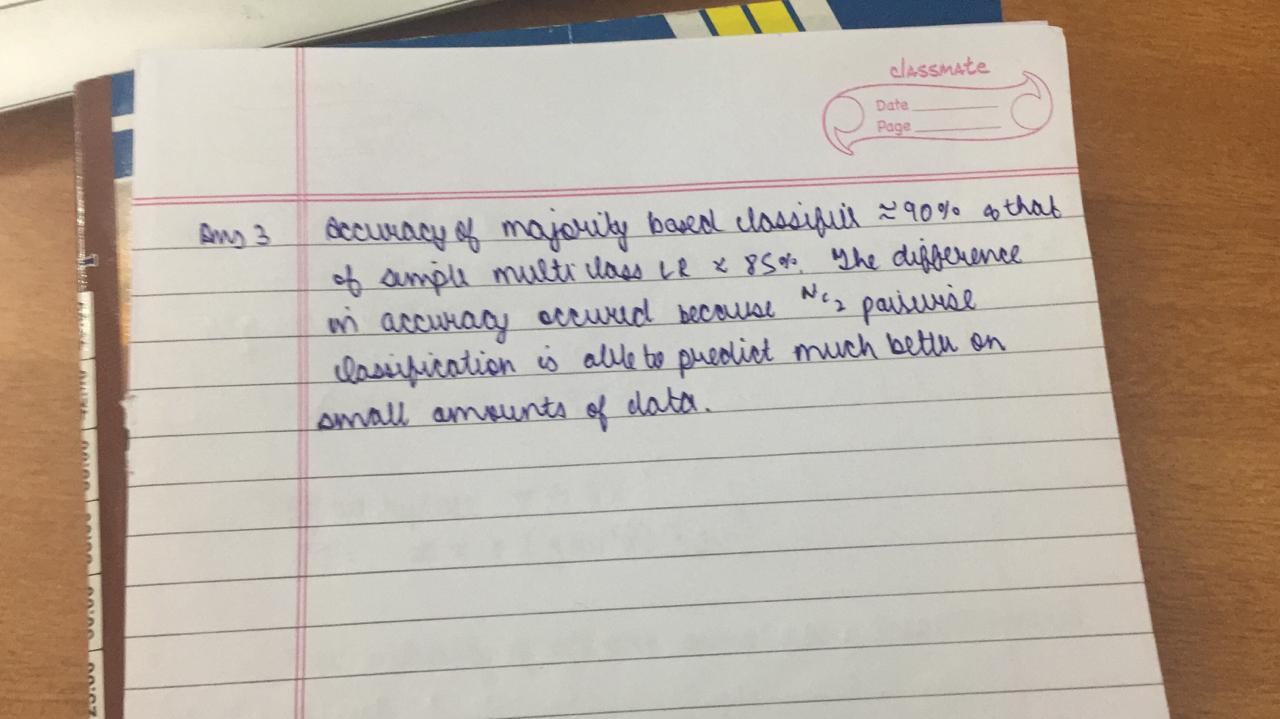 classmate
Date
Page
Ans 3 Accuracy of majority based classifier ≈ 90% & that
of simple multiclass LR ≈ 85%. The difference
in accuracy occured because ᴺC₂ pairwise
classification is able to predict much better on
small amounts of data.